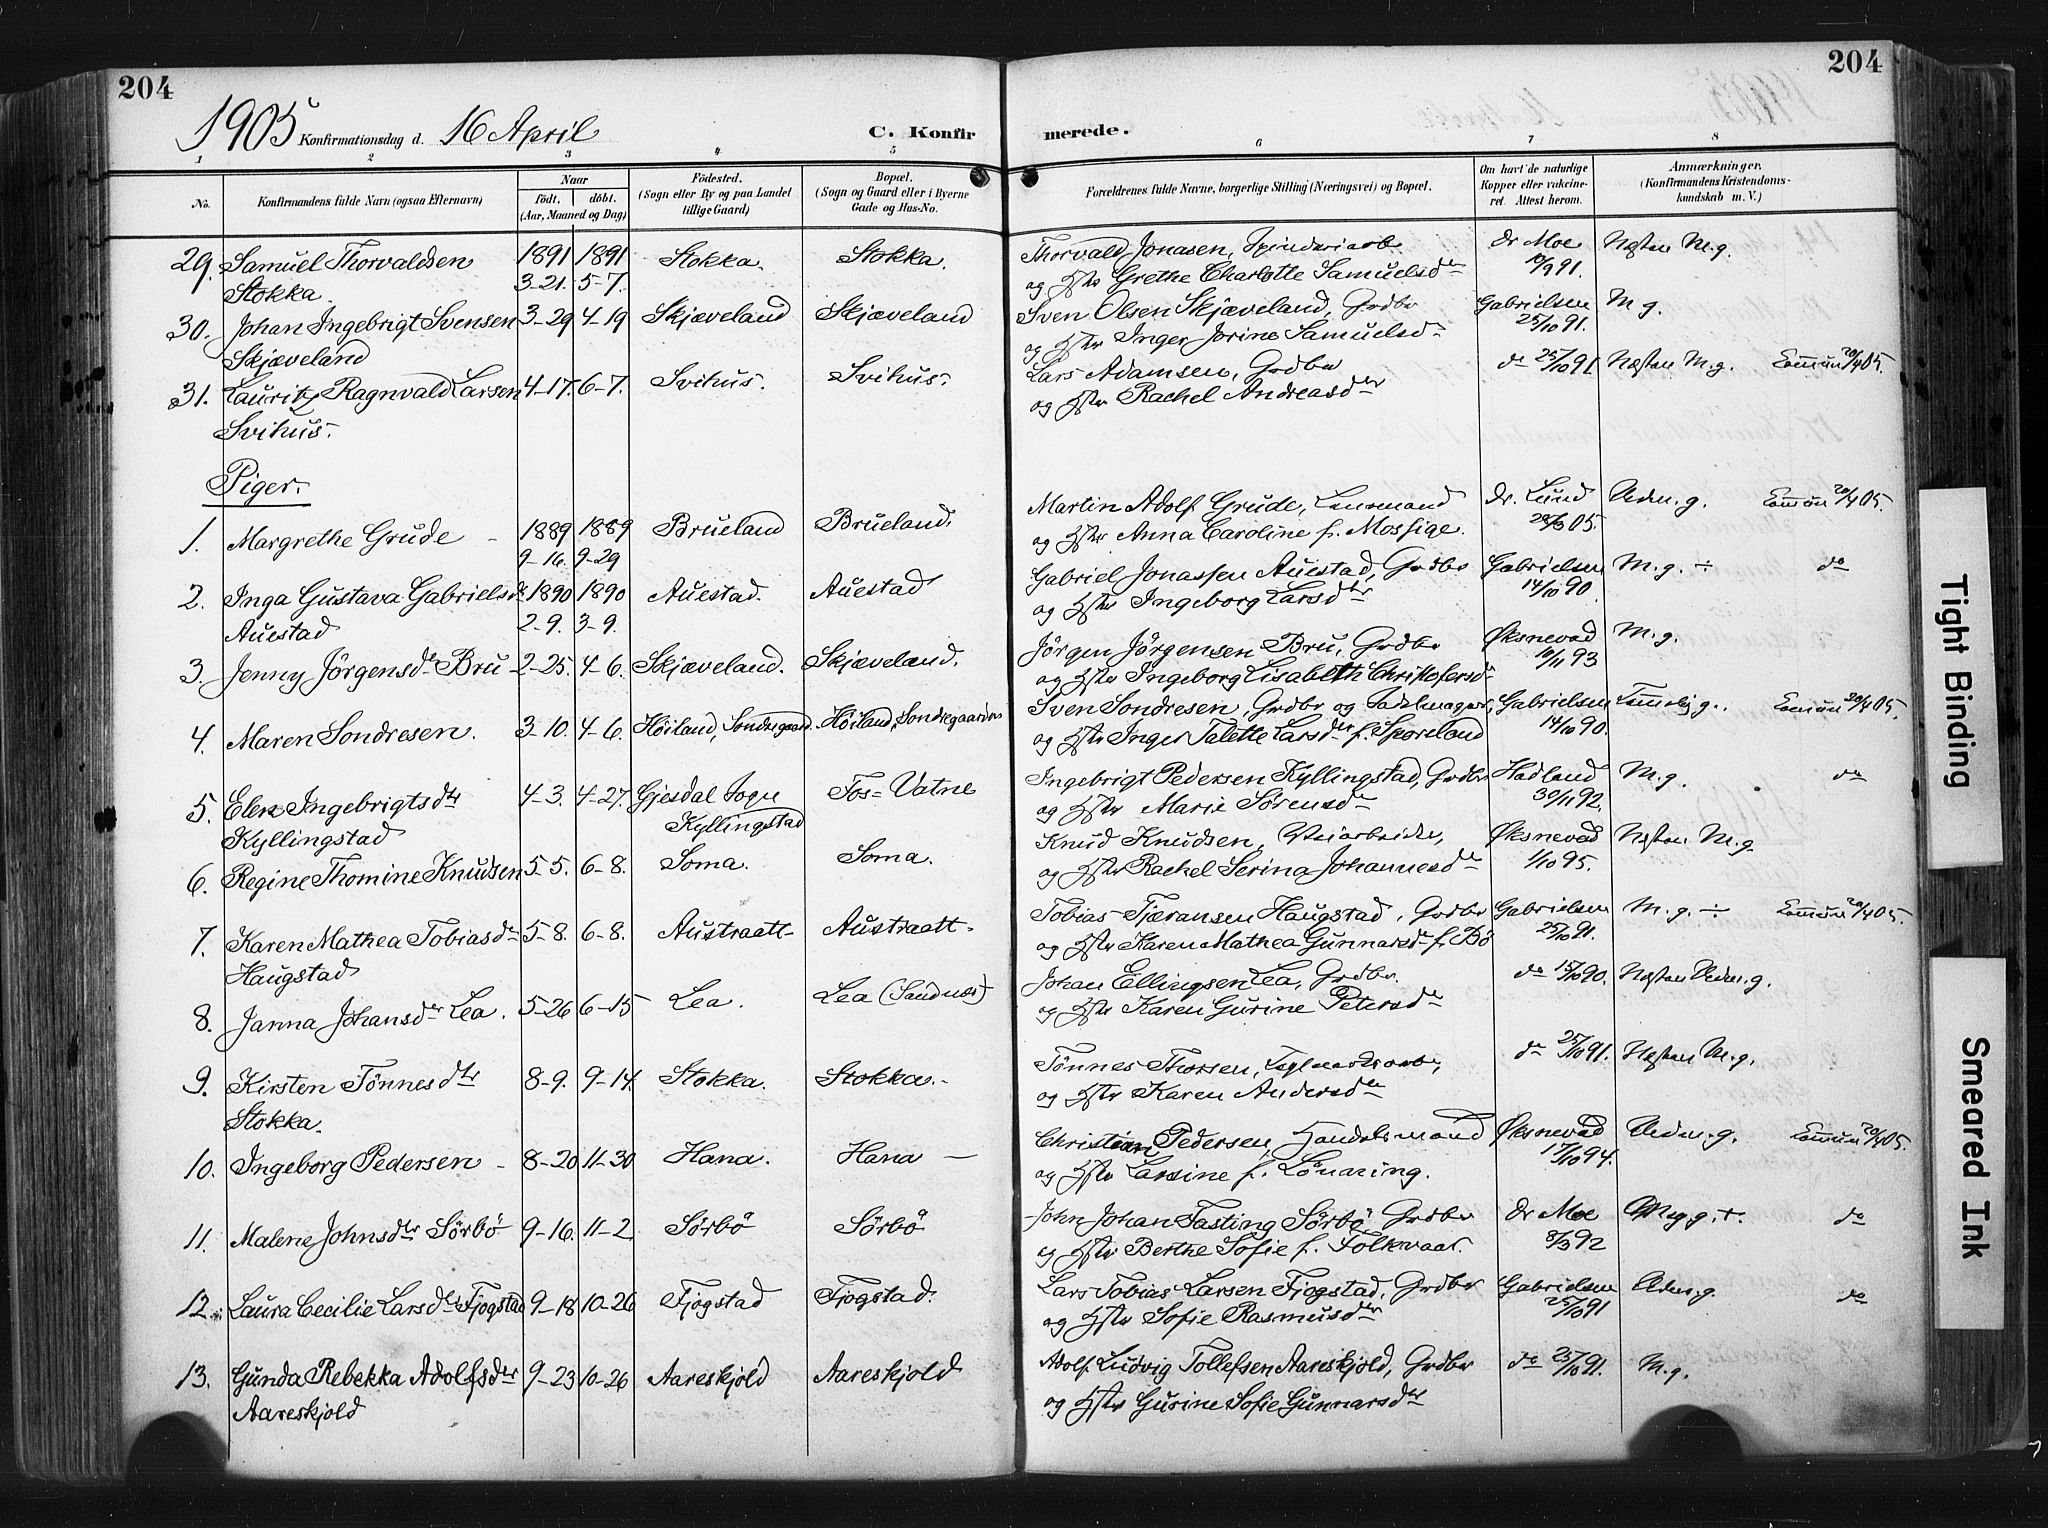 204
204
1905 Konfirmationsdag d. 16 April
C. Konfirmerede.
1 2 3 4 5 6 7 8
No.
Konfirmandens fulde Navn (ogsaa Efternavn)
Naar
födt. döbt.
(Aar, Maaned og Dag)
Födested.
(Sogn eller By og paa Landet
tillige Gaard)
Bopæl.
(Sogn og Gaard eller i Byerne
Gade og Hus-No.
Forældrenes fulde Navne, borgerlige Stilling (Næringsvei) og Bopæl.
Om havt de naturlige
Kopper eller vakcine-
ret. Attest herom.
Anmærkninger.
(Konfirmandens Kristendoms-
kundskab m. V.)
29. Samuel Thorvaldsen 1891 1891 Stokka. Stokka. Thorvald Jonasen, Spinderiarb. dr Moe Næsten M.g.
Stokka. 3-21. 5-7. og Hstr Grethe Charlotte Samuelsdtr 10/9 91.
30. Johan Ingebrigt Svensen 3-29 4-19 Skjæveland Skjæveland Sven Olsen Skjæveland, Grdbr Gabrielsen M g.
Skjæveland og Hstr Inger Jorine Samuelsdtr 25/10 91.
31. Lauritz Ragnvald Larsen 4-17. 6-7. Svihus. Svihus. Lars Adamsen, Grdbr do 25/10 91. Næsten M.g. Commun 20/4 05.
Svihus. og Hstr Rachel Andreasdtr
Piger.
1. Margrethe Grude - 1889 1889 Brueland Brueland. Martin Adolf Grude, Lensmand dr. Lund Udm.g. Commun 20/4 05.
9-16. 9-29 og Hstr Anna Caroline f. Mossige. 28/3 05.
2. Inga Gustava Gabrielsdtr 1890 1890 Auestad. Auestad Gabriel Jonassen Auestad, Grdbr Gabrielsen M.g. ÷ do
Auestad 2-9. 3-9. og Hstr Ingeborg Larsdtr 14/10 90.
3. Jenny Jørgensdtr Bru 2-25. 4-6. Skjæveland. Skjæveland. Jørgen Jørgensen Bru, Grdbr Øksnevad M.g.
og Hstr Ingeborg Lisabeth Christofersdtr 10/11 93
4. Maren Sondresen. 3-10. 4-6. Höiland, Sondregaard. Höiland, Sondregaarden Sven Sondresen, Grdbr og Sadelmager, Gabrielsen Temmelig g. Commun 20/4 05.
og Hstr Inger Talette Larsdtr f. Skoreland 14/10 90.
5. Elen Ingebrigtsdtr 4-3. 4-27. Gjesdal Sogn Fos=Vatne Ingebrigt Pedersen Kyllingstad, Grdbr Hadland M.g. do
Kyllingstad Kyllingstad og Hstr Marie Sørensdtr 30/11 92.
6. Regine Thomine Knudsen 5-5. 6-8. Soma. Soma. Knud Knudsen, Veiarbeider, Øksnevad Næsten M.g.
og Hstr Rachel Serina Johannesdtr 1/10 95.
7. Karen Mathea Tobiasdtr 5-8. 6-8. Austraatt- Austraatt- Tobias Tjæransen Haugstad, Grdbr Gabrielsen M.g. ÷ Commun 20/4 05.
Haugstad og Hstr Karen Mathea Gunnarsdtr f. Bö 25/10 91.
8. Janna Johansdtr Lea. 5-26 6-15 Lea. Lea (Sandnes) Johan Ellingsen Lea, Grdbr. do 15/10 90. Næsten Udm.g.
og Hstr Karen Gurine Petersdtr
9. Kirsten Tönnesdtr 8-9. 9-14. Stokka. Stokka. Tönnes Thorsen, Teglverksarb., do 25/10 91. Næsten M.g.
Stokka. og Hstr Karen Andersdtr
10. Ingeborg Pedersen - 8-20 11-30 Hana. Hana - Christian Pedersen, Handelsmand Øksnevad Udm.g. Commun 20/4 05.
og Hstr Larsine f. Lönning. 17/10 94.
11. Malene Johnsdtr Sörbö 9-16. 11-2 Sörbö Sörbö John Johan Tasting Sörbö, Grdbr dr Moe Meg g. + do
og Hstr Berthe Sofie f. Folkvaar. 8/3 92
12. Laura Cecilie Larsdtr Fjogstad 9-18 10-26 Fjogstad Fjogstad. Lars Tobias Larsen Fjogstad, Grdbr Gabrielsen Udm.g. do
og Hstr Sofie Rasmusdtr 25/10 91
13. Gunda Rebekka Adolfsdtr 9-23 10-26 Aareskjold Aareskjold Adolf Ludvig Tollefsen Aareskjold, Grdbr do 25/10 91. M.g.
Aareskjold og Hstr Gurine Sofie Gunnarsdtr
Tight Binding
Smeared Ink